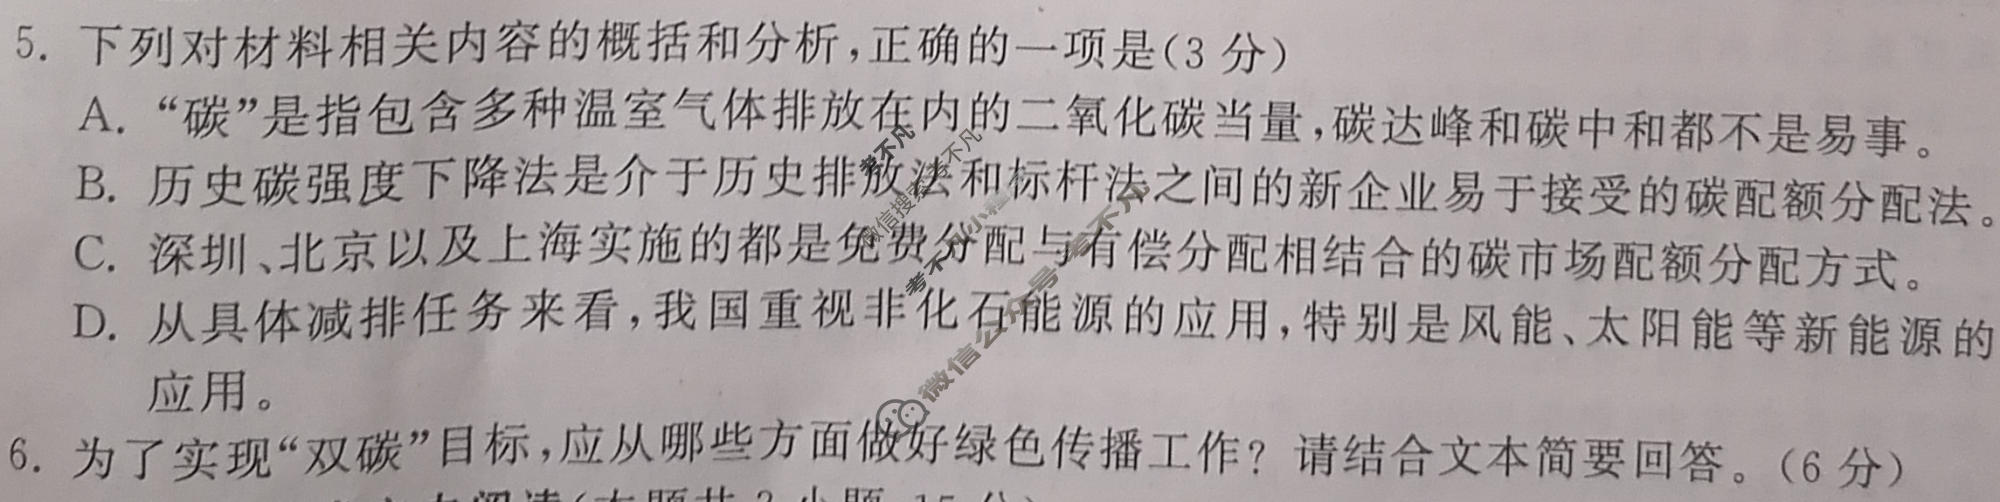 5. 下列对材料相关内容的概括和分析,正确的一项是(3 分)
A. “碳”是指包含多种温室气体排放在内的二氧化碳当量,碳达峰和碳中和都不是易事。
B. 历史碳强度下降法是介于历史排放法和标杆法之间的新企业易于接受的碳配额分配法。
C. 深圳、北京以及上海实施的都是免费分配与有偿分配相结合的碳市场配额分配方式。
D. 从具体减排任务来看,我国重视非化石能源的应用,特别是风能、太阳能等新能源的
应用。
6. 为了实现“双碳”目标,应从哪些方面做好绿色传播工作? 请结合文本简要回答。(6 分)
考不凡
微信搜索考不凡
微信公众号考不凡